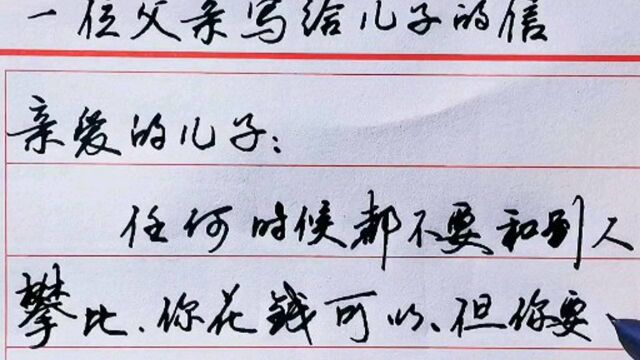 一位父亲写给儿子的信
亲爱的儿子：
任何时候都不要和别人
攀比、你花钱可以、但你要